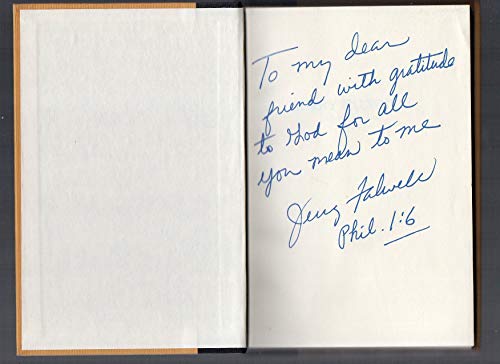 To my dear
friend with gratitude
to God for all
you mean to me
Jerry Falwell
Phil. 1:6